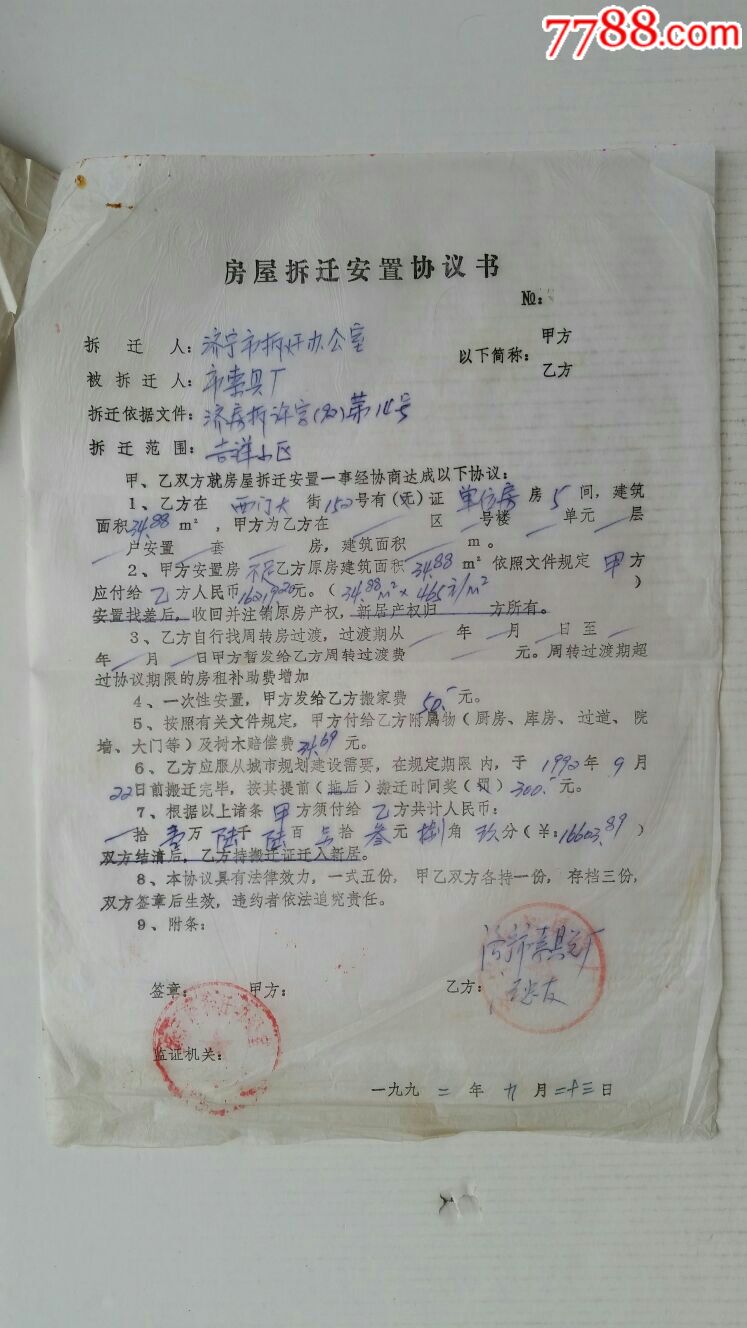 7788.com
房屋拆迁安置协议书
№:
拆迁人:济宁市拆迁办公室
甲方
以下简称:
乙方
被拆迁人:市索具厂
拆迁依据文件:济房拆许字( )第14号
拆迁范围:吉祥小区
甲、乙双方就房屋拆迁安置一事经协商达成以下协议:
1、乙方在西门大街152号有(无)证单位房房5间,建筑
面积34.88m²,甲方为乙方在 区 号楼 单元 层
户安置 套 房,建筑面积 m。
2、甲方安置房 乙方原房建筑面积34.88m²依照文件规定甲方
应付给乙方人民币16219.20元。(34.88m²×465元/m² )
安置找差后,收回并注销原房产权,新居产权归 方所有。
3、乙方自行找周转房过渡,过渡期从 年 月 日至
年 月 日甲方暂发给乙方周转过渡费 元。周转过渡期超
过协议期限的房租补助费增加
4、一次性安置,甲方发给乙方搬家费50.-元。
5、按照有关文件规定,甲方付给乙方附属物(厨房、库房、过道、院
墙、大门等)及树木赔偿费34.69元。
6、乙方应服从城市规划建设需要,在规定期限内,于1992年9月
22日前搬迁完毕,按其提前(拖后)搬迁时间奖(罚)300.-元。
7、根据以上诸条甲方须付给乙方共计人民币:
拾壹万陆千陆百 拾叁元捌角玖分(¥:16603.89)
双方结清后,乙方持搬迁证迁入新居。
8、本协议具有法律效力,一式五份,甲乙双方各持一份,存档三份,
双方签章后生效,违约者依法追究责任。
9、附条:
济宁市索具厂
签章: 甲方: 乙方:
监证机关:
一九九二年九月二十三日